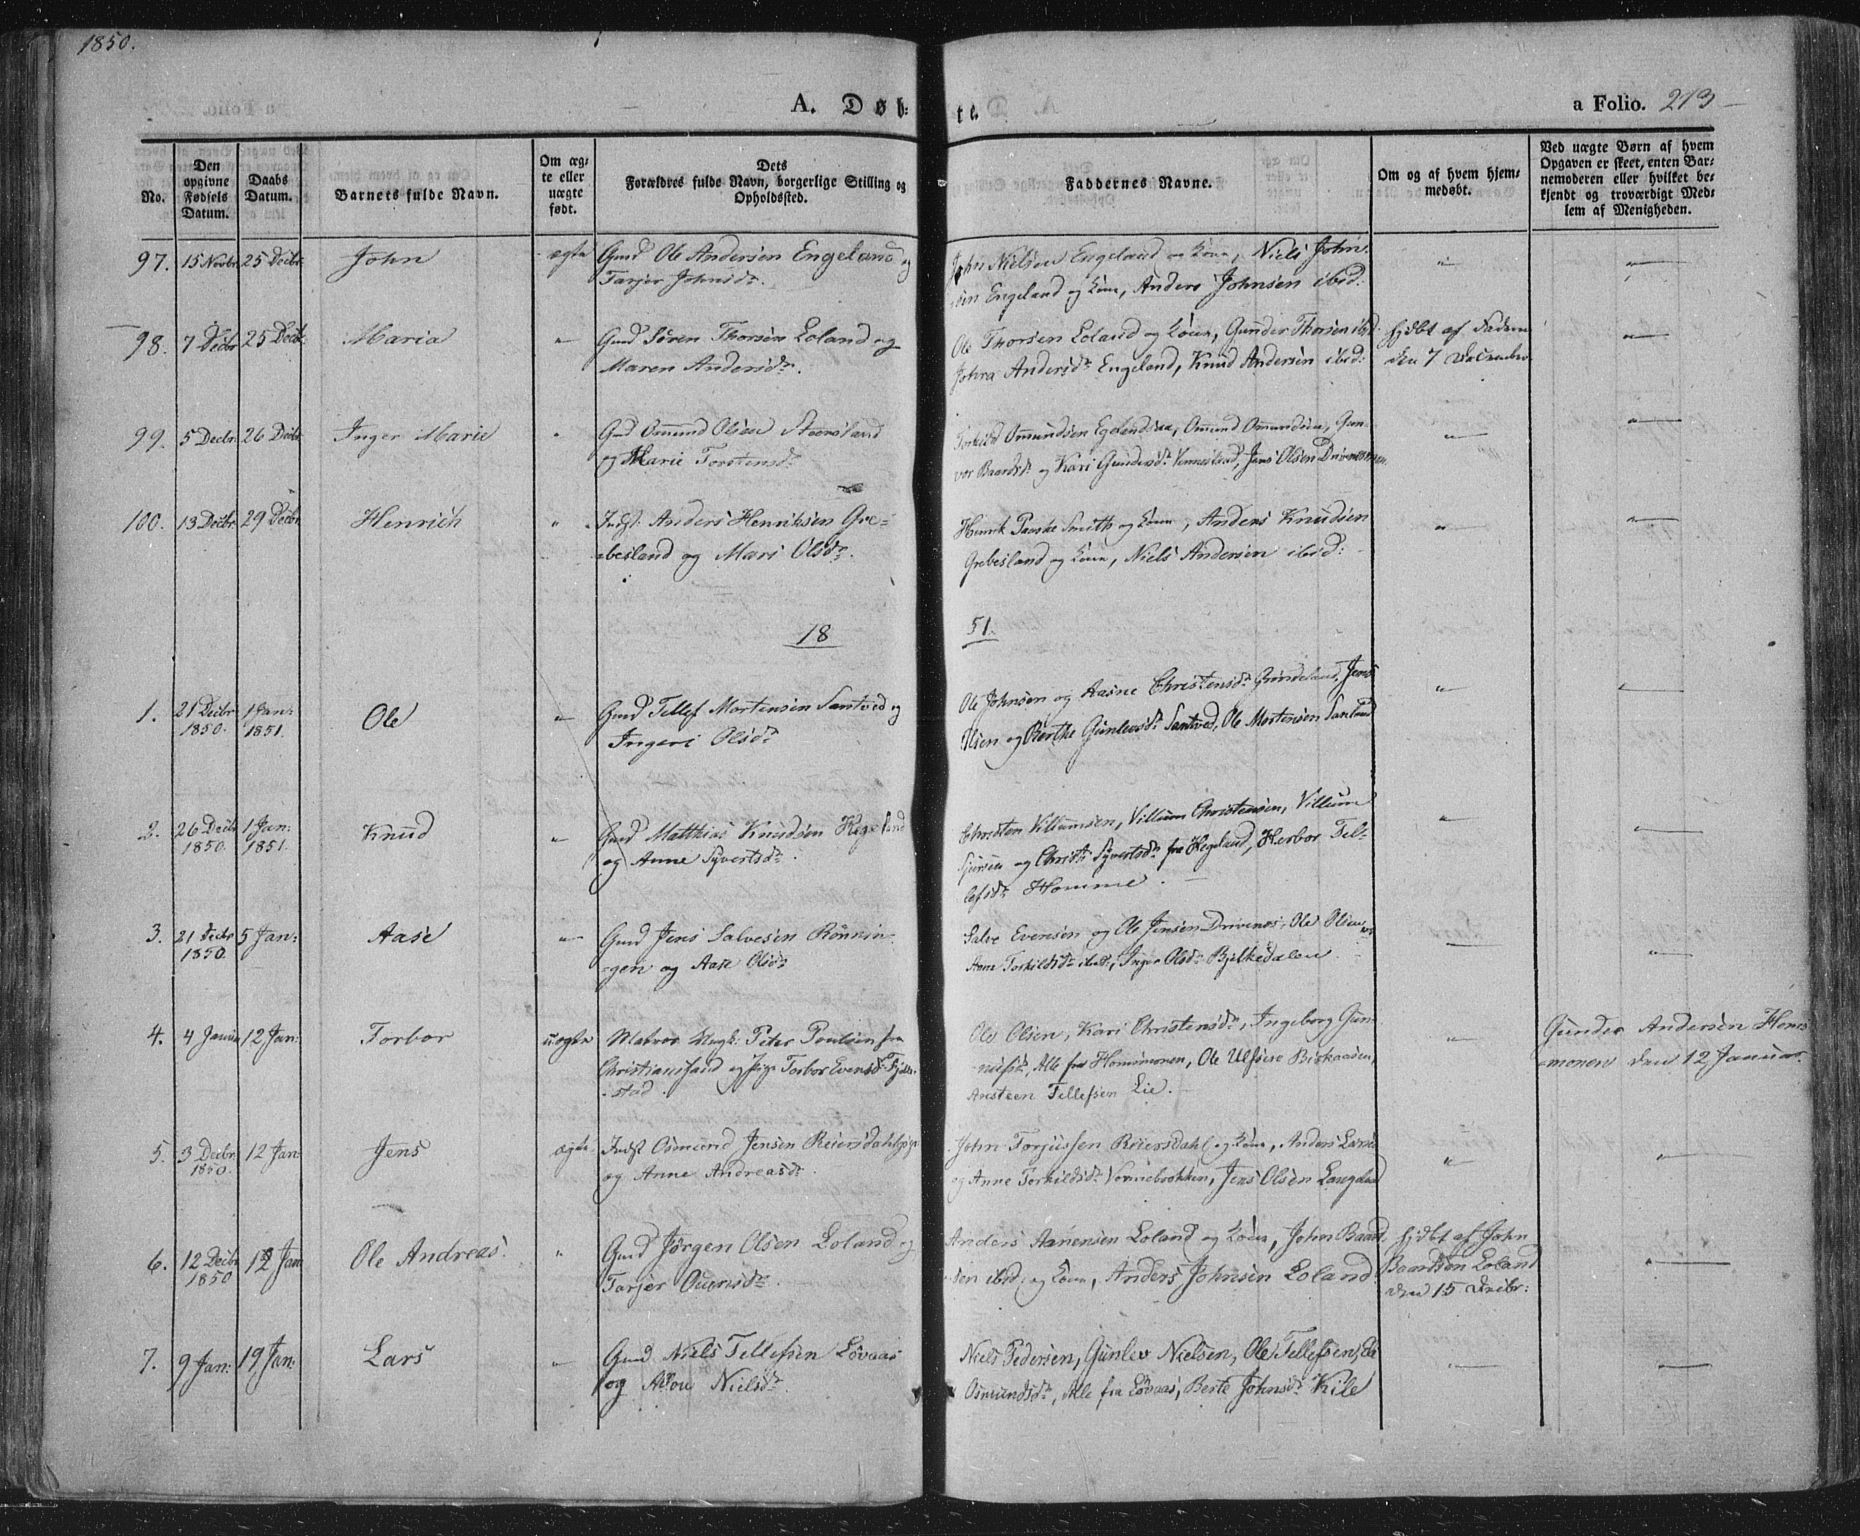 1850.
A. Døb-
te.
a Folio. 213
No.
Den opgivne Fødsels Datum.
Daabs Datum.
Barnets fulde Navn.
Om ægte eller uægte født.
Dets Forældres fulde Navn, borgerlige Stilling og Opholdssted.
Faddernes Navne.
Om og af hvem hjemmedøbt.
Ved uægte Børn af hvem Opgaven er skeet, enten Barnemoderen eller hvilket bekjendt og troværdigt Medlem af Menigheden.
97. 15 Novbr. 25 Decbr. John ægte Gmd Ole Andersen Engeland og
Tarjer Johnsdr.
John Nielsen Engeland og Kone, Niels John-
sen Engeland og Kone, Anders Johnsen ibid:
98. 7 Decbr 25 Decbr Maria " Gmd Sören Thorsen Loland og
Maren Andersdr.
Ole Thorsen Loland og Kone, Gunder Thorsen ibd.
Johna Andersdr Engeland, Knud Andersen ibid:
hjdbt af Faderen
den 7 December
99. 5 Decbr. 26 Decbr. Inger Marie " Gmd Omund Olsen
og Marie Torstensdr
Torkild Omundsen Egelandsaa, Omund Omundsen, Gun-
vor Baardsdr og Kari Gundersdr Vennestad, Jens Olsen Drivenes
100. 13 Decbr. 29 Decbr. Henrich " Indst: Anders Henriksen Gre-
besland og Mari Olsdr.
Henrik Paaske Smith og Kone, Anders Knudsen
Grebesland og Kone, Niels Andersen ibid:
18
51.
1. 21 Decbr 1850. 1 Jan: 1851. Ole " Gmd Tellef Mortensen Santved og
Ingeri Olsdr
Ole Johnsen og Aasne Christensdr Grindeland, Jens
Olsen og Berthe Gunlevsdr Santved, Ole Mortensen
2. 26 Decbr 1850. 1 Jan: 1851. Knud " Gmd Matthias Knudsen Hegeland
og Anne Syvertsdr.
Christen Villumsen, Villum Christensen, Villum
Sjursen og Christi Syvertsdr fra Hegeland, Herbor Tel-
lefsdr Homme.
3. 21 Decbr 1850. 5 Jan: Aase " Gmd Jens Salvesen Rönnin-
gen og Aase Olsdr
Salve Evensen og Ole Jensen Drivenes, Ole Olsen
Anne Torkildsdr ibid:, Inger Olsdr Bjelkedalen.
4. 4 Januar 12 Jan: Torbor uægte Matros Ungk: Peter Poulsen fra
Christiansand og Pige Torbor Evensdr Fjell-
stad.
Ole Olsen, Kari Christensdr, Ingeborg Gun-
nufsdr, Alle fra Hommonen, Ole Ulfsen Birkaasen,
Aasteen Tellefsen Lie.
Gunder Andersen Hom-
monen den 12 Januar.
5. 3 Decbr. 1850. 12 Jan: Jens ægte Indst Osmund Jensen Reiersdahl
og Anne Andreasdr.
John Torjussen Reiersdahl og Kone, Anders Larsen
og Anne Torkildsdr Vennebrokken, Jens Olsen Langeland
6. 12 Decbr. 1850 12 Jan Ole Andreas. " Gmd Jörgen Olsen Loland og
Tarjer Ouensdr.
Anders Aanensen Loland og Kone, John Baard-
sen ibid, og Kone, Anders Johnsen Loland
hjdbt af John
Baardsen Loland
den 15 Decbr:
7. 9 Jan: 19 Jan: Lars " Gmd Niels Tellefsen Lövaas
og Aslou Nielsdr.
Niels Pedersen, Gunlev Nielsen, Ole Tellefsen,
Osmundsdr, Alle fra Lövaas, Berte Johnsdr Kile